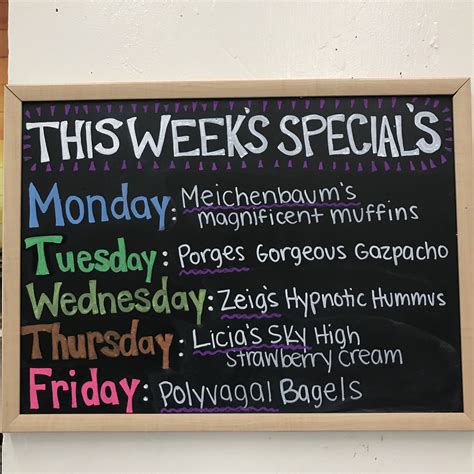 THIS WEEK'S SPECIAL'S
Monday: Meichenbaum's
magnificent muffins
Tuesday: Porges Gorgeous Gazpacho
Wednesday: Zeig's Hypnotic Hummus
Thursday: Licia's Sky High
strawberry cream
Friday: Polyvagal Bagels